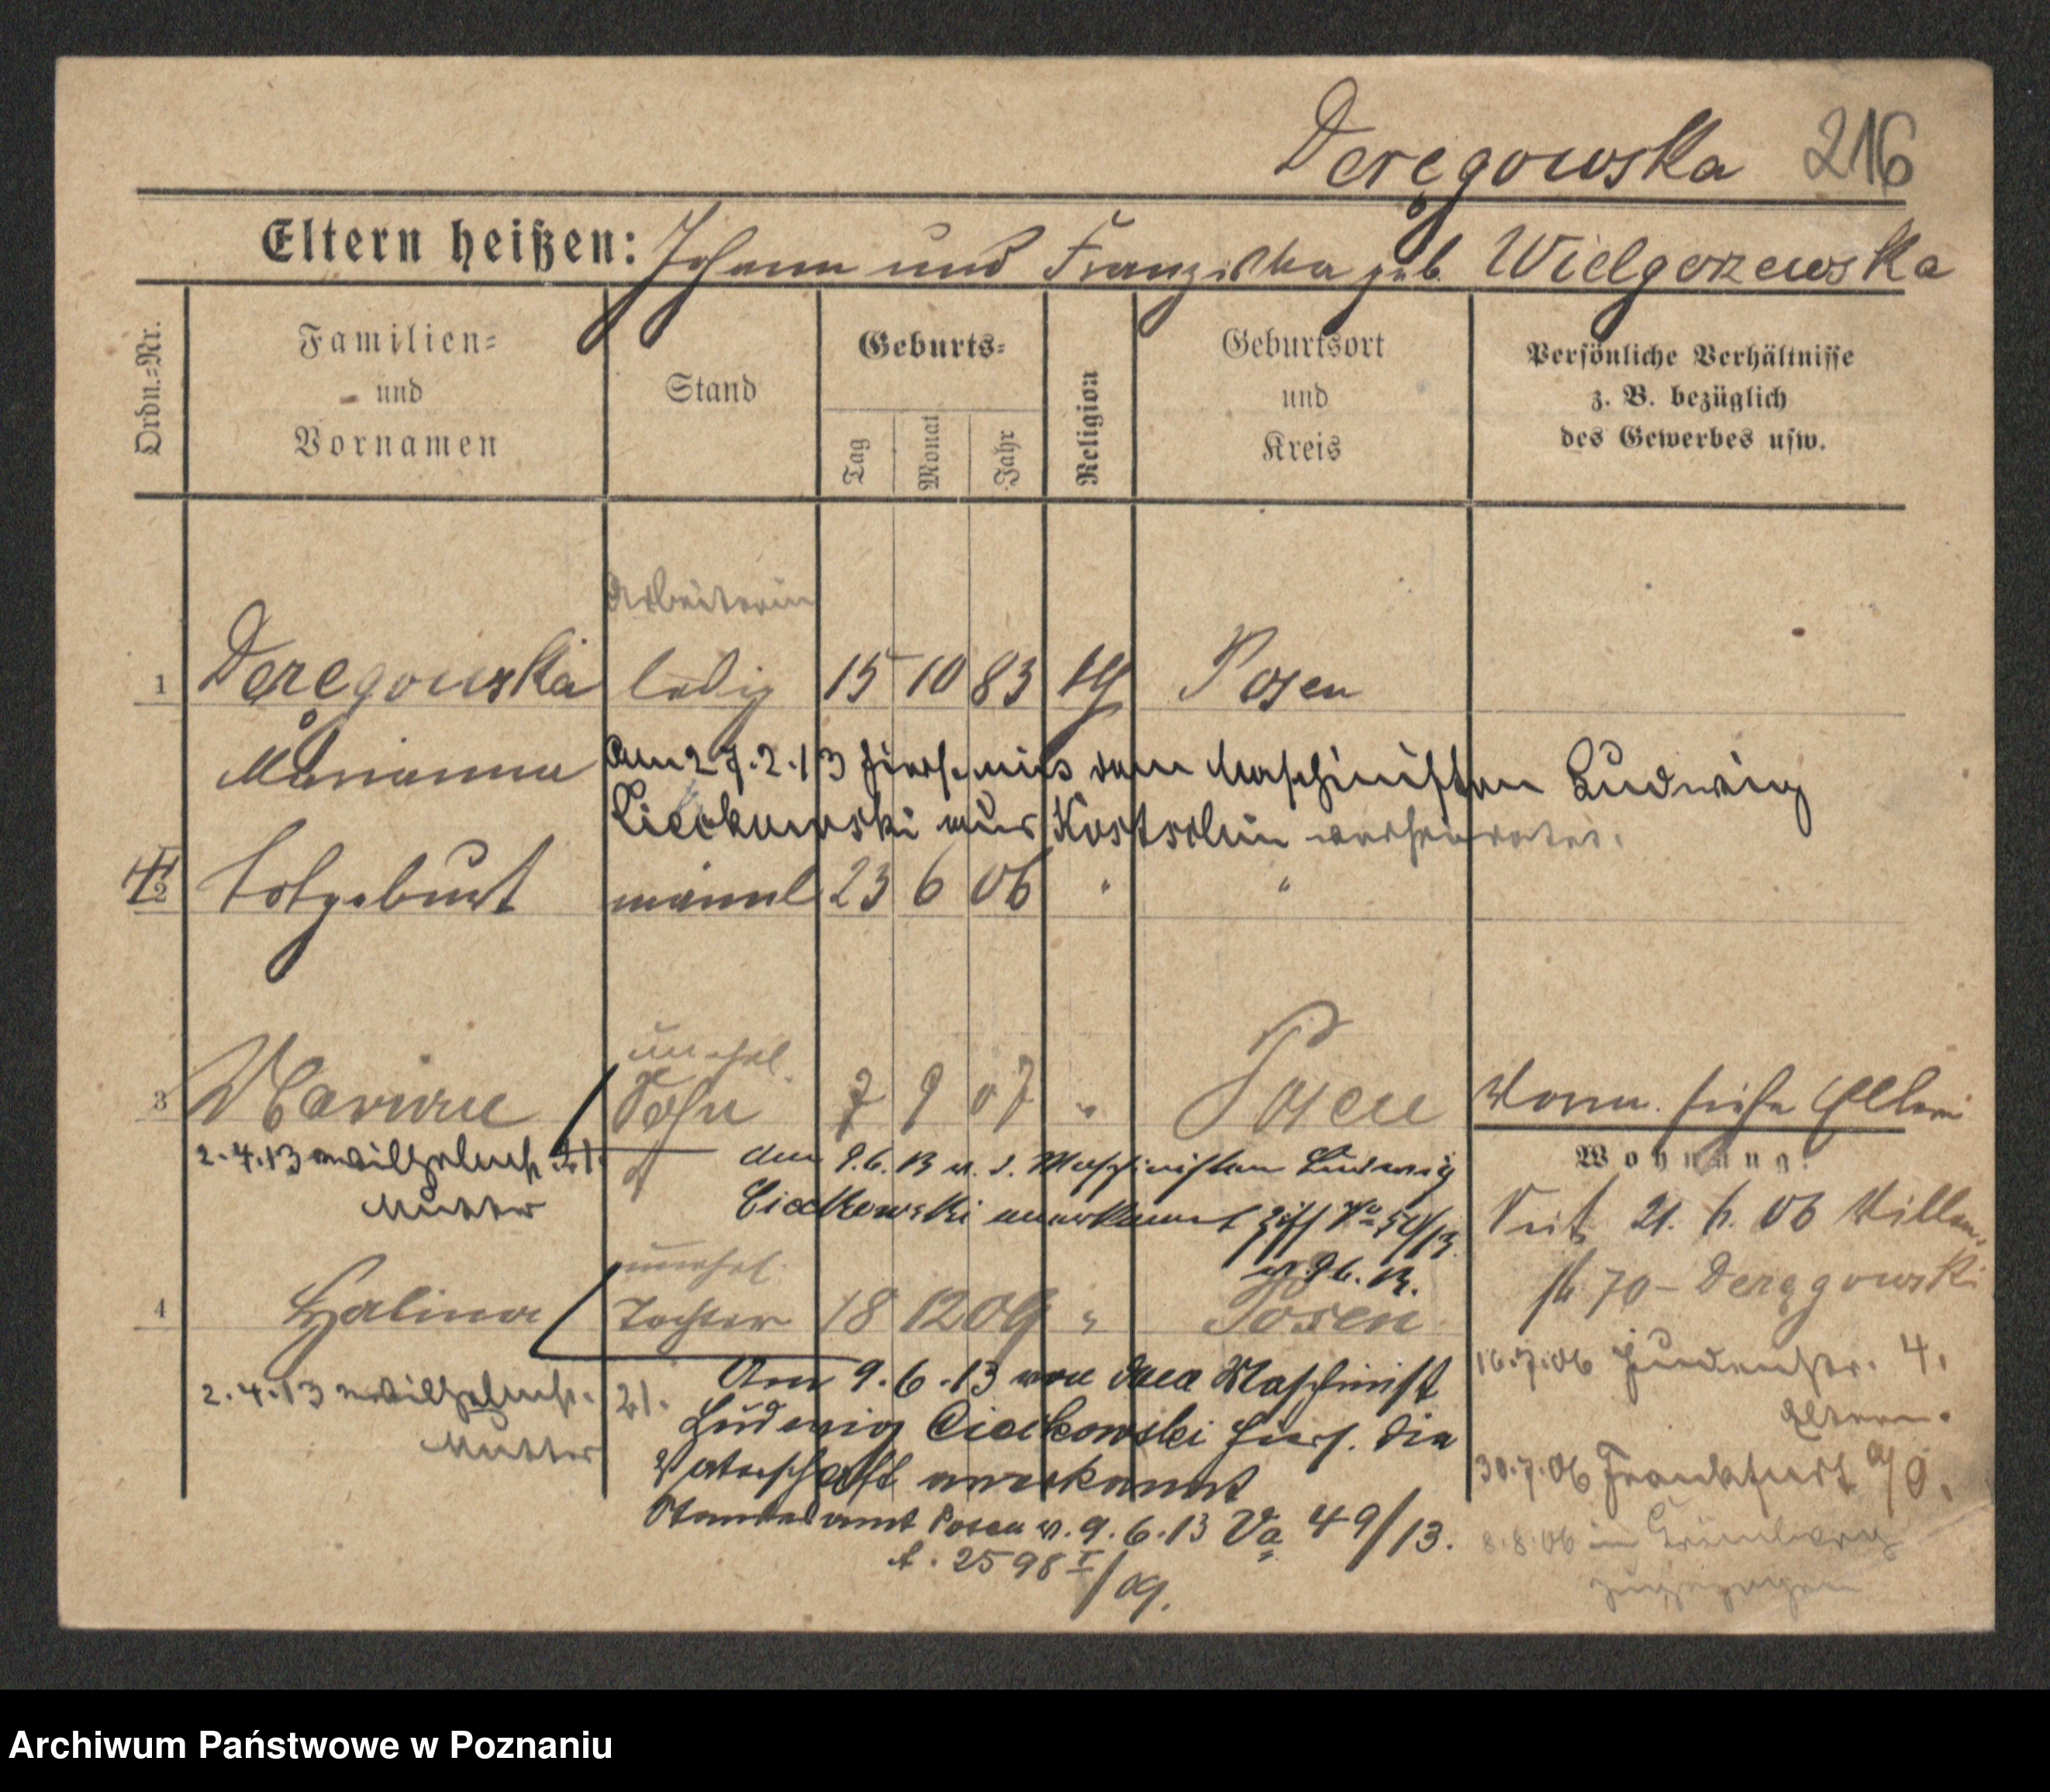 Deręgowska 216
Eltern heißen: Johann und Franziska geb. Wielgorzewska
Ordn.=Nr.
Familien=
und
Vornamen
Stand
Geburts=
Tag
Monat
Jahr
Religion
Geburtsort
und
Kreis
Persönliche Verhältnisse
z. B. bezüglich
des Gewerbes usw.
Arbeiterin
1 Deręgowska ledig 15 10 83 Posen
Marianna Am 27.2.13 hierselbst mit dem Maschinisten Ludwig
aus Kostschin verheiratet.
2 Totgeburt männl 23 6 06 " "
unehel.
3 Marian Sohn 7 9 07 " Posen
Vorm. siehe Eltern
2.4.13 Mutter
den 9.6.13 v. d. Maschinisten Ludwig
Cieckowski anerkannt 50/13
v. 9.6.13.
Wohnung:
Seit 21.6.06
70 - Deręgowski
unehel.
4 Halina Tochter 18 12 09 " Posen
16.7.06 Judenstr. 4.
Eltern.
2.4.13 21.
Mutter
Am 9.6.13 von dem Maschinist
Ludwig Cieckowski hier. die
Vaterschaft anerkannt
Standesamt Posen v. 9.6.13 Va 49/13.
A. 2598 I/09.
30.7.06 Frankfurt a/O.
8.8.06 in Grünberg
zugezogen
Archiwum Państwowe w Poznaniu